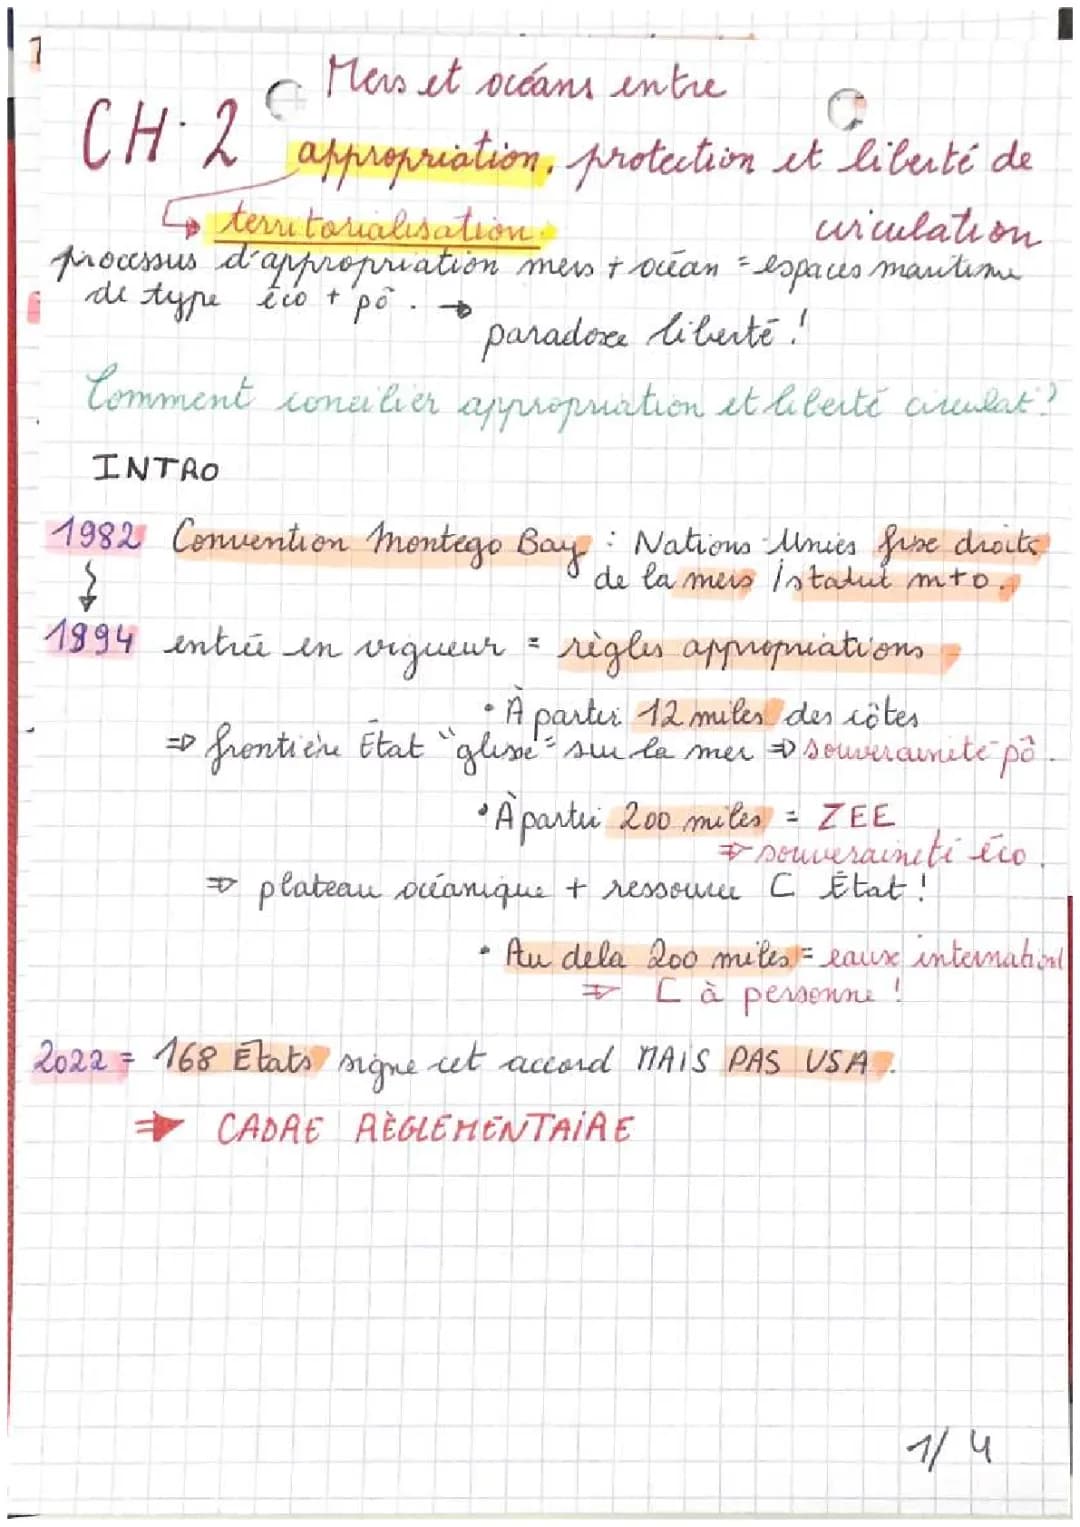 Mers et océans entre
CH. 2 appropriation, protection et liberté de
circulation
↳ territorialisation
processus d'appropriation mers + océan = espaces maritime
de type éco + pô. →
paradoxe liberté !
Comment concilier appropriation et liberté circulat° ?
INTRO
1982 Convention Montego Bay : Nations-Unies fixe droits
de la mers / statut m+o.
1994 entrée en vigueur = règles appropriations
• À partir 12 miles des côtes
⇒ frontière État "glisse" sur la mer ⇒ souveraineté pô.
• À partir 200 miles = ZEE
⇒ souveraineté éco.
⇒ plateau océanique + ressource C État !
• Au dela 200 miles = eaux international
⇒ C à personne !
2022 = 168 États signe cet accord MAIS PAS USA.
⇒ CADRE RÈGLEMENTAIRE
1/4